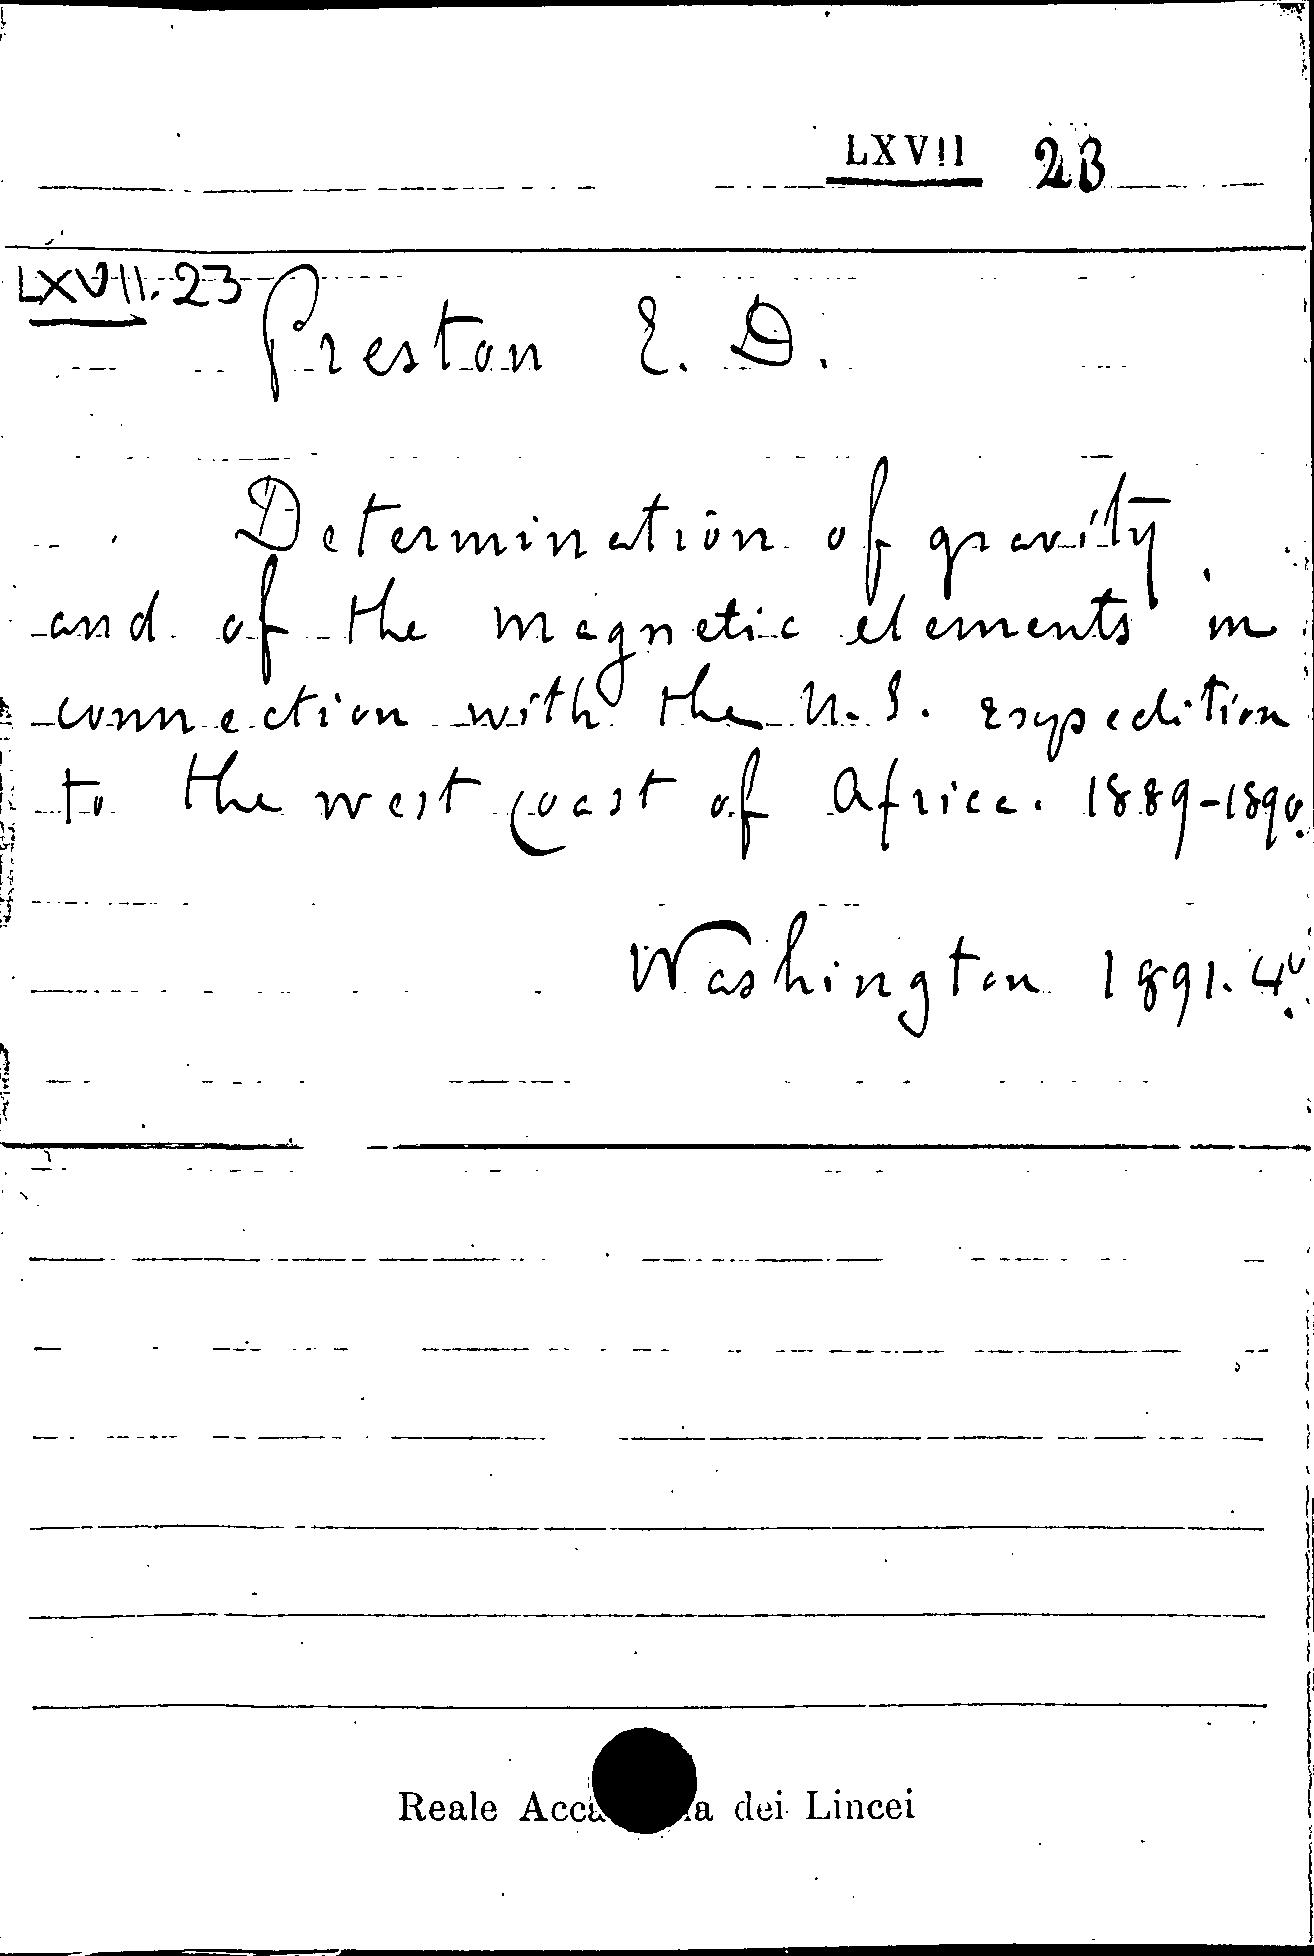 LXVII 23
LXVII. 23
Preston E. D.
Determination of gravity
and of the magnetic elements in
connection with the U. S. expedition
to the west coast of Africa. 1889-1890.
Washington 1891. 4º
Reale dei Lincei